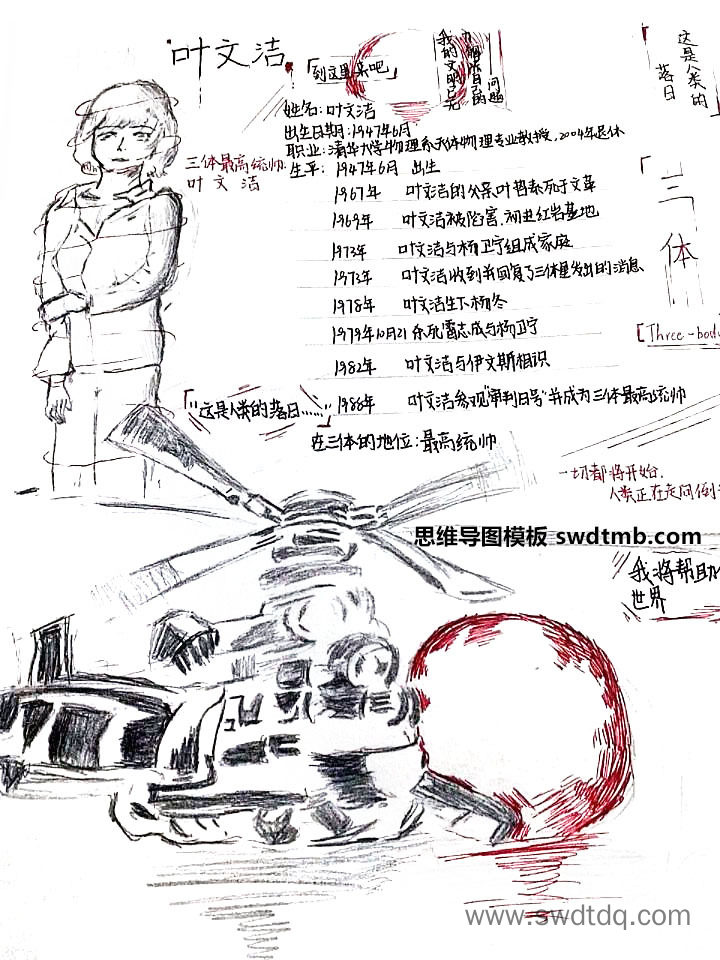 叶文洁
「到这里来吧」
我的文明已无
力解决自己的
问题
这是人类的
落日
姓名:叶文洁
出生日期:1947年6月
职业:清华大学物理系天体物理专业教授,2004年退休
三体最高统帅
叶文洁
生平:1947年6月 出生
1967年 叶文洁的父亲叶哲泰死于文革
1969年 叶文洁被陷害,初进红岩基地
1973年 叶文洁与杨卫宁组成家庭
1973年 叶文洁收到并回复了三体星发出的消息
1978年 叶文洁生下杨冬
1979年10月21 杀死雷志成与杨卫宁
1982年 叶文洁与伊文斯相识
1988年 叶文洁参观"审判日号"并成为三体最高统帅
在三体的地位:最高统帅
「三体
[Three-body
"这是人类的落日......"
一切都将开始.
人类正在走向倒
思维导图模板 swdtmb.com
我将帮助
世界
www.swdtdq.com